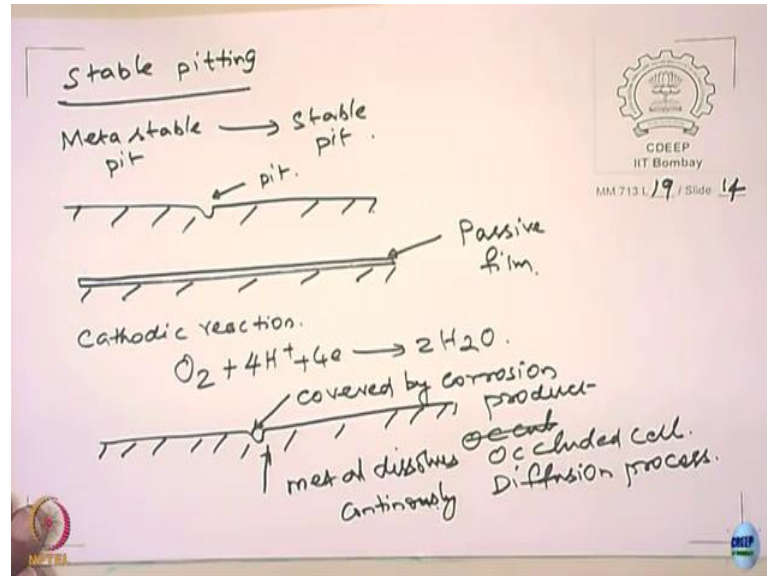 Stable pitting
CDEEP
IIT Bombay
MM 713 L 19 / Slide 14
Meta stable → Stable
pit pit.
pit.
Passive
film.
Cathodic reaction.
O2 + 4H+ + 4e → 2H2O.
covered by corrosion
product
metal dissolves Occluded cell.
continously Diffusion process.
NPTEL
CDEEP